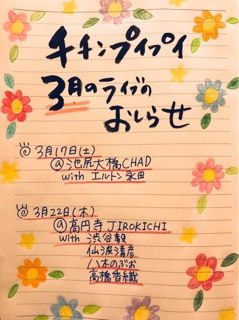 チチンプイプイ
3月のライブの
おしらせ
3月17日(土)
@池尻大橋CHAD
with エルトン永田
3月22日(木)
@高円寺JIROKICHI
with 渋谷毅
仙波清彦
八木のぶお
高橋香織